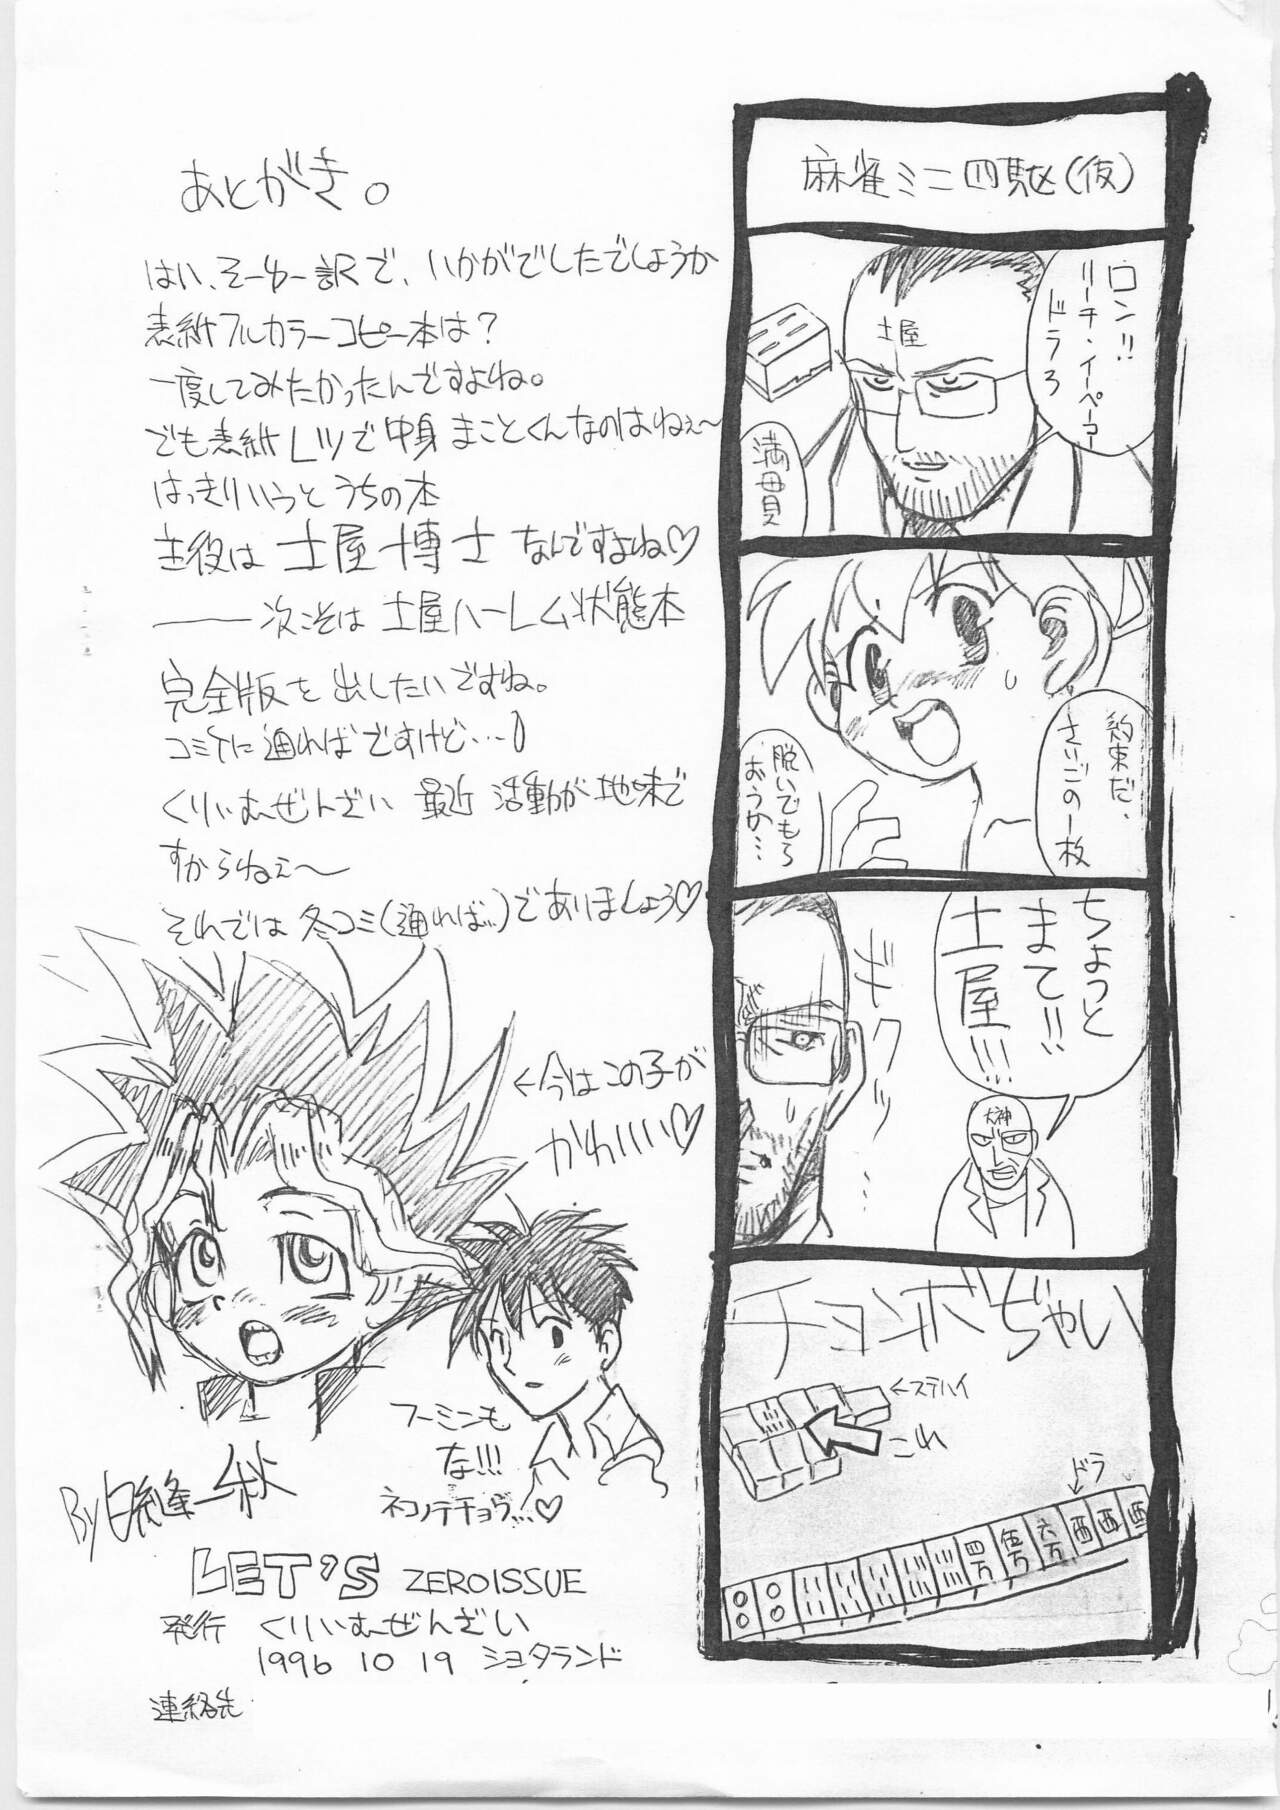 あとがき。
はい、そーゆー訳で、いかがでしたでしょうか
表紙フルカラーコピー本は?
一度してみたかったんですよね。
でも表紙レツで中身まことくんなのはねぇ〜
はっきりいうとうちの本
主役は土屋博士なんですよね♡
――次こそは土屋ハーレム状態本
完全版を出したいですね。
コミケに通ればですけど…
くりぃむぜんざい 最近 活動が地味で
すからねぇ〜
それでは冬コミ(通れば…)でありましょう♡
←今はこの子が
かわいいい♡
フーミンも
な!!!
ネコノテチョウ…♡
By 日縫一秋
LET'S ZERO ISSUE
発行 くりぃむぜんざい
1996 10 19 ショタランド
連絡先
麻雀ミニ四駆(仮)
ロン!!
リーチ・イーペーコー
ドラ3
土屋
満貫
約束だ、
さいごの一枚
脱いでもら
おうか…
ちょっと
まて!!
土屋!!!
ギクリ…
大神
チョンボぢゃい
←ステハイ
これ
ドラ
四万
伍万
六万
西
西
西